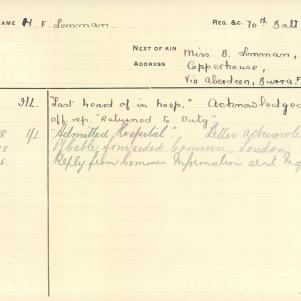 NAME H. F. Lomman. REG. &C. 70th Batt
NEXT OF KIN Miss B. Lomman,
ADDRESS Copperhouse,
Via Aberdeen, Burra.
"Last heard of in hosp." Acknowledged
off. rep. "Returned to Duty"
8 1/2 "Admitted Hospital". Letter acknowle
Cable forwarded Commn. London.
8. Reply from Commn. Information sent